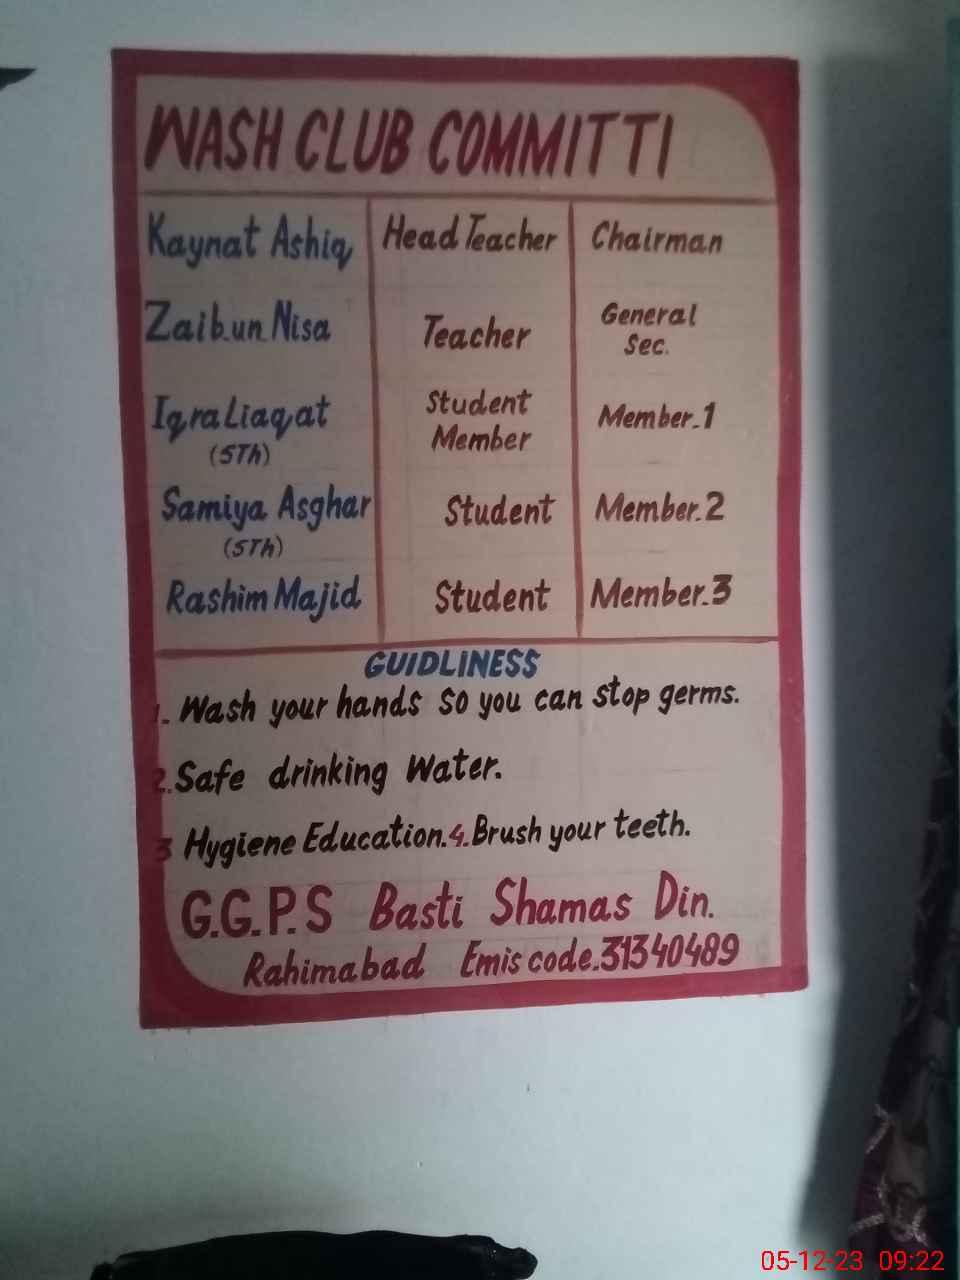 WASH CLUB COMMITTI
Kaynat Ashiq Head Teacher Chairman
Zaib.un.Nisa Teacher General Sec.
Iqra Liaqat (5Th) Student Member Member.1
Samiya Asghar (5Th) Student Member.2
Rashim Majid Student Member.3
GUIDLINESS
1. Wash your hands so you can stop germs.
2. Safe drinking Water.
3 Hygiene Education. 4. Brush your teeth.
G.G.P.S Basti Shamas Din.
Rahimabad Emis code.31340489
05-12-23 09:22